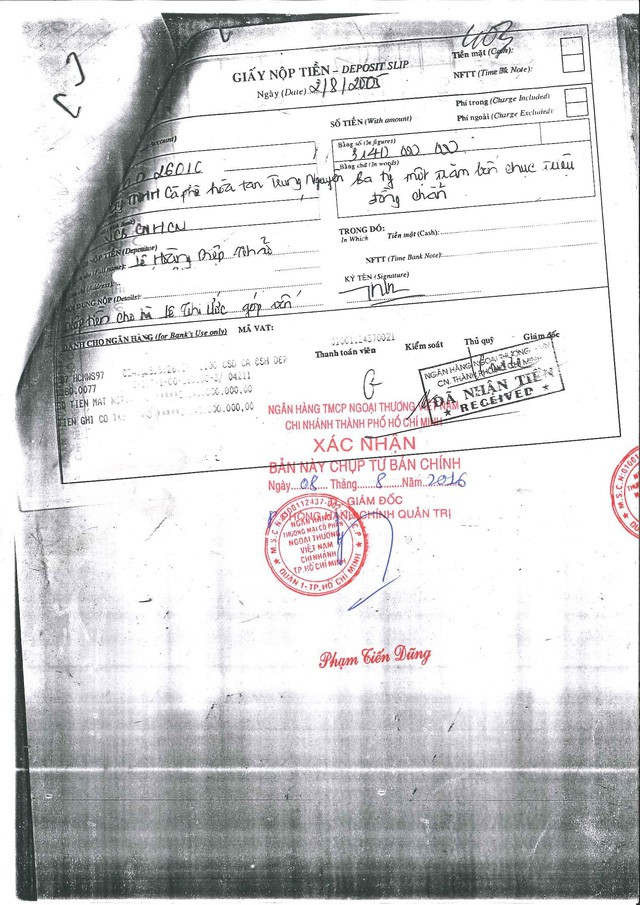 403
GIẤY NỘP TIỀN – DEPOSIT SLIP
Ngày (Date) 2/8/2005
Tiền mặt (Cash):
NFTT (Time Bk Note):
Phí trong (Charge Included)
Phí ngoài (Charge Excluded):
SỐ TIỀN (With amount)
Bằng số (In figures)
3.140.000.000
Bằng chữ (In words)
Ba tỷ một trăm bốn chục triệu
đồng chẵn
2601C
TNHH Cà phê hòa tan Trung Nguyên
VCB CNHCM
NỘP TIỀN (Depositor)
Lê Hoàng Diệp Thảo
NỘI DUNG NỘP (Details):
Nộp tiền cho bà Lê Thị Ước góp vốn
TRONG ĐÓ:
In Which
Tiền mặt (Cash):
NFTT (Time Bank Note):
KÝ TÊN (Signature)
DÀNH CHO NGÂN HÀNG (for Bank's Use only)
MÃ VAT:
01001124370021
Thanh toán viên
Kiểm soát
Thủ quỹ
Giám đốc
HCMWS97
CSD CA CSH DEP
0077
04211
TIEN MAT
000.000,00
TIEN GHI CO TK
000.000,00
NGÂN HÀNG NGOẠI THƯƠNG
CN. THÀNH PHỐ HỒ CHÍ MINH
ĐÃ NHẬN TIỀN
★ RECEIVED ★
NGÂN HÀNG TMCP NGOẠI THƯƠNG VIỆT NAM
CHI NHÁNH THÀNH PHỐ HỒ CHÍ MINH
XÁC NHẬN
BẢN NÀY CHỤP TỪ BẢN CHÍNH
Ngày 08 Tháng 8 Năm 2016
GIÁM ĐỐC
PHÒNG HÀNH CHÍNH QUẢN TRỊ
NGÂN HÀNG
THƯƠNG MẠI CỔ PHẦN
NGOẠI THƯƠNG
VIỆT NAM
CHI NHÁNH
TP.HỒ CHÍ MINH
QUẬN 1-TP.HỒ CHÍ MINH
Phạm Tiến Dũng